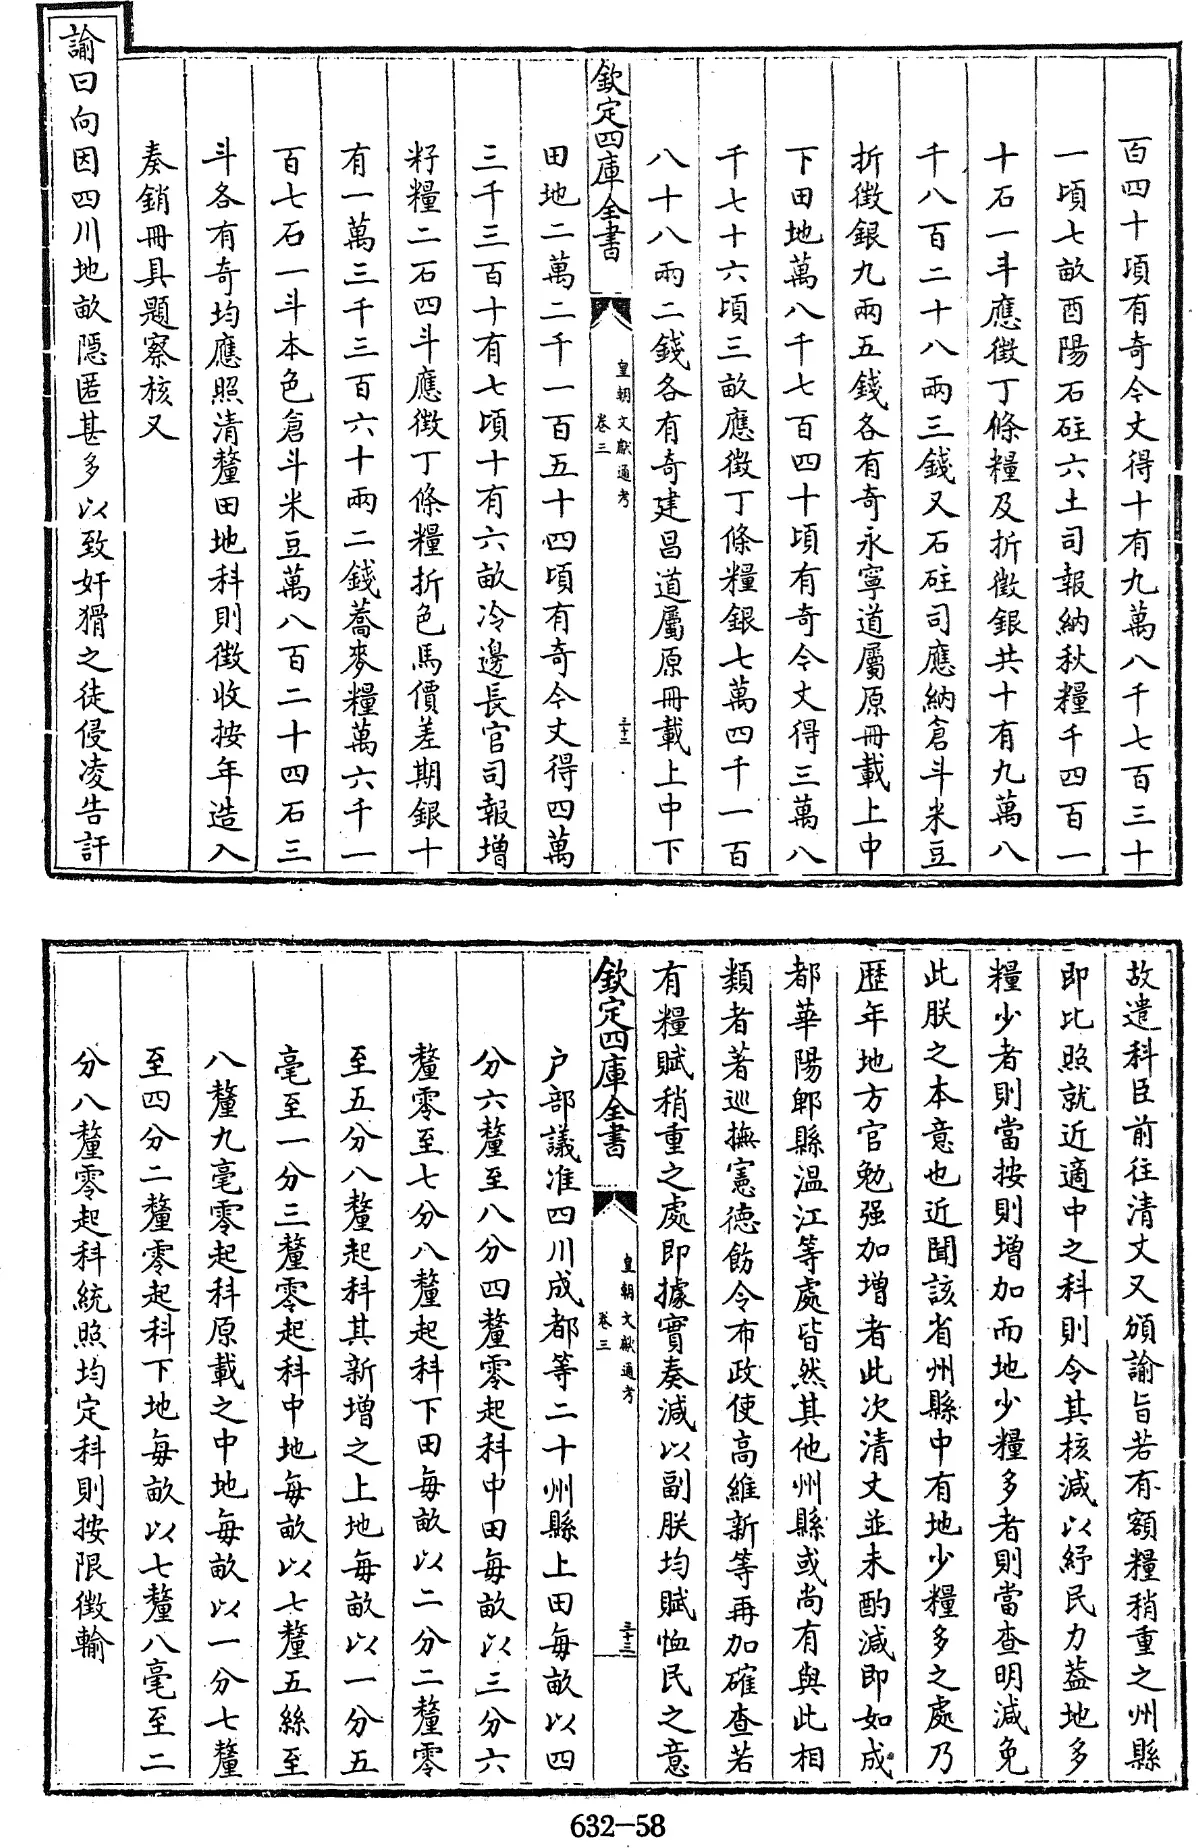 百四十頃有奇今丈得十有九萬八千七百三十
一頃七畝酉陽石砫六土司報納秋糧千四百一
十石一斗應徴丁條糧及折徴銀共十有九萬八
千八百二十八兩三錢又石砫司應納倉斗米豆
折徴銀九兩五錢各有奇永寧道屬原冊載上中
下田地萬八千七百四十頃有奇今丈得三萬八
千七十六頃三畝應徴丁條糧銀七萬四千一百
八十八兩二錢各有奇建昌道屬原冊載上中下
欽定四庫全書
皇朝文獻通考
卷三
三十二
田地二萬二千一百五十四頃有奇今丈得四萬
三千三百十有七頃十有六畝冷邊長官司報增
籽糧二石四斗應徴丁條糧折色馬價差期銀十
有一萬三千三百六十兩二錢蕎麥糧萬六千一
百七石一斗本色倉斗米豆萬八百二十四石三
斗各有奇均應照清釐田地科則徴收按年造入
奏銷冊具題察核又
諭曰向因四川地畝隱匿甚多以致奸猾之徒侵凌告訐
故遣科臣前往清丈又頒諭旨若有額糧稍重之州縣
即比照就近適中之科則令其核減以紓民力葢地多
糧少者則當按則增加而地少糧多者則當查明減免
此朕之本意也近聞該省州縣中有地少糧多之處乃
歷年地方官勉强加增者此次清丈並未酌減即如成
都華陽郫縣温江等處皆然其他州縣或尚有與此相
類者著巡撫憲德飭令布政使高維新等再加確查若
有糧賦稍重之處即據實奏減以副朕均賦恤民之意
欽定四庫全書
皇朝文獻通考
卷三
三十三
户部議准四川成都等二十州縣上田每畝以四
分六釐至八分四釐零起科中田每畝以三分六
釐零至七分八釐起科下田每畝以二分二釐零
至五分八釐起科其新增之上地每畝以一分五
毫至一分三釐零起科中地每畝以七釐五絲至
八釐九毫零起科原載之中地每畝以一分七釐
至四分二釐零起科下地每畝以七釐八毫至二
分八釐零起科統照均定科則按限徴輸
632-58